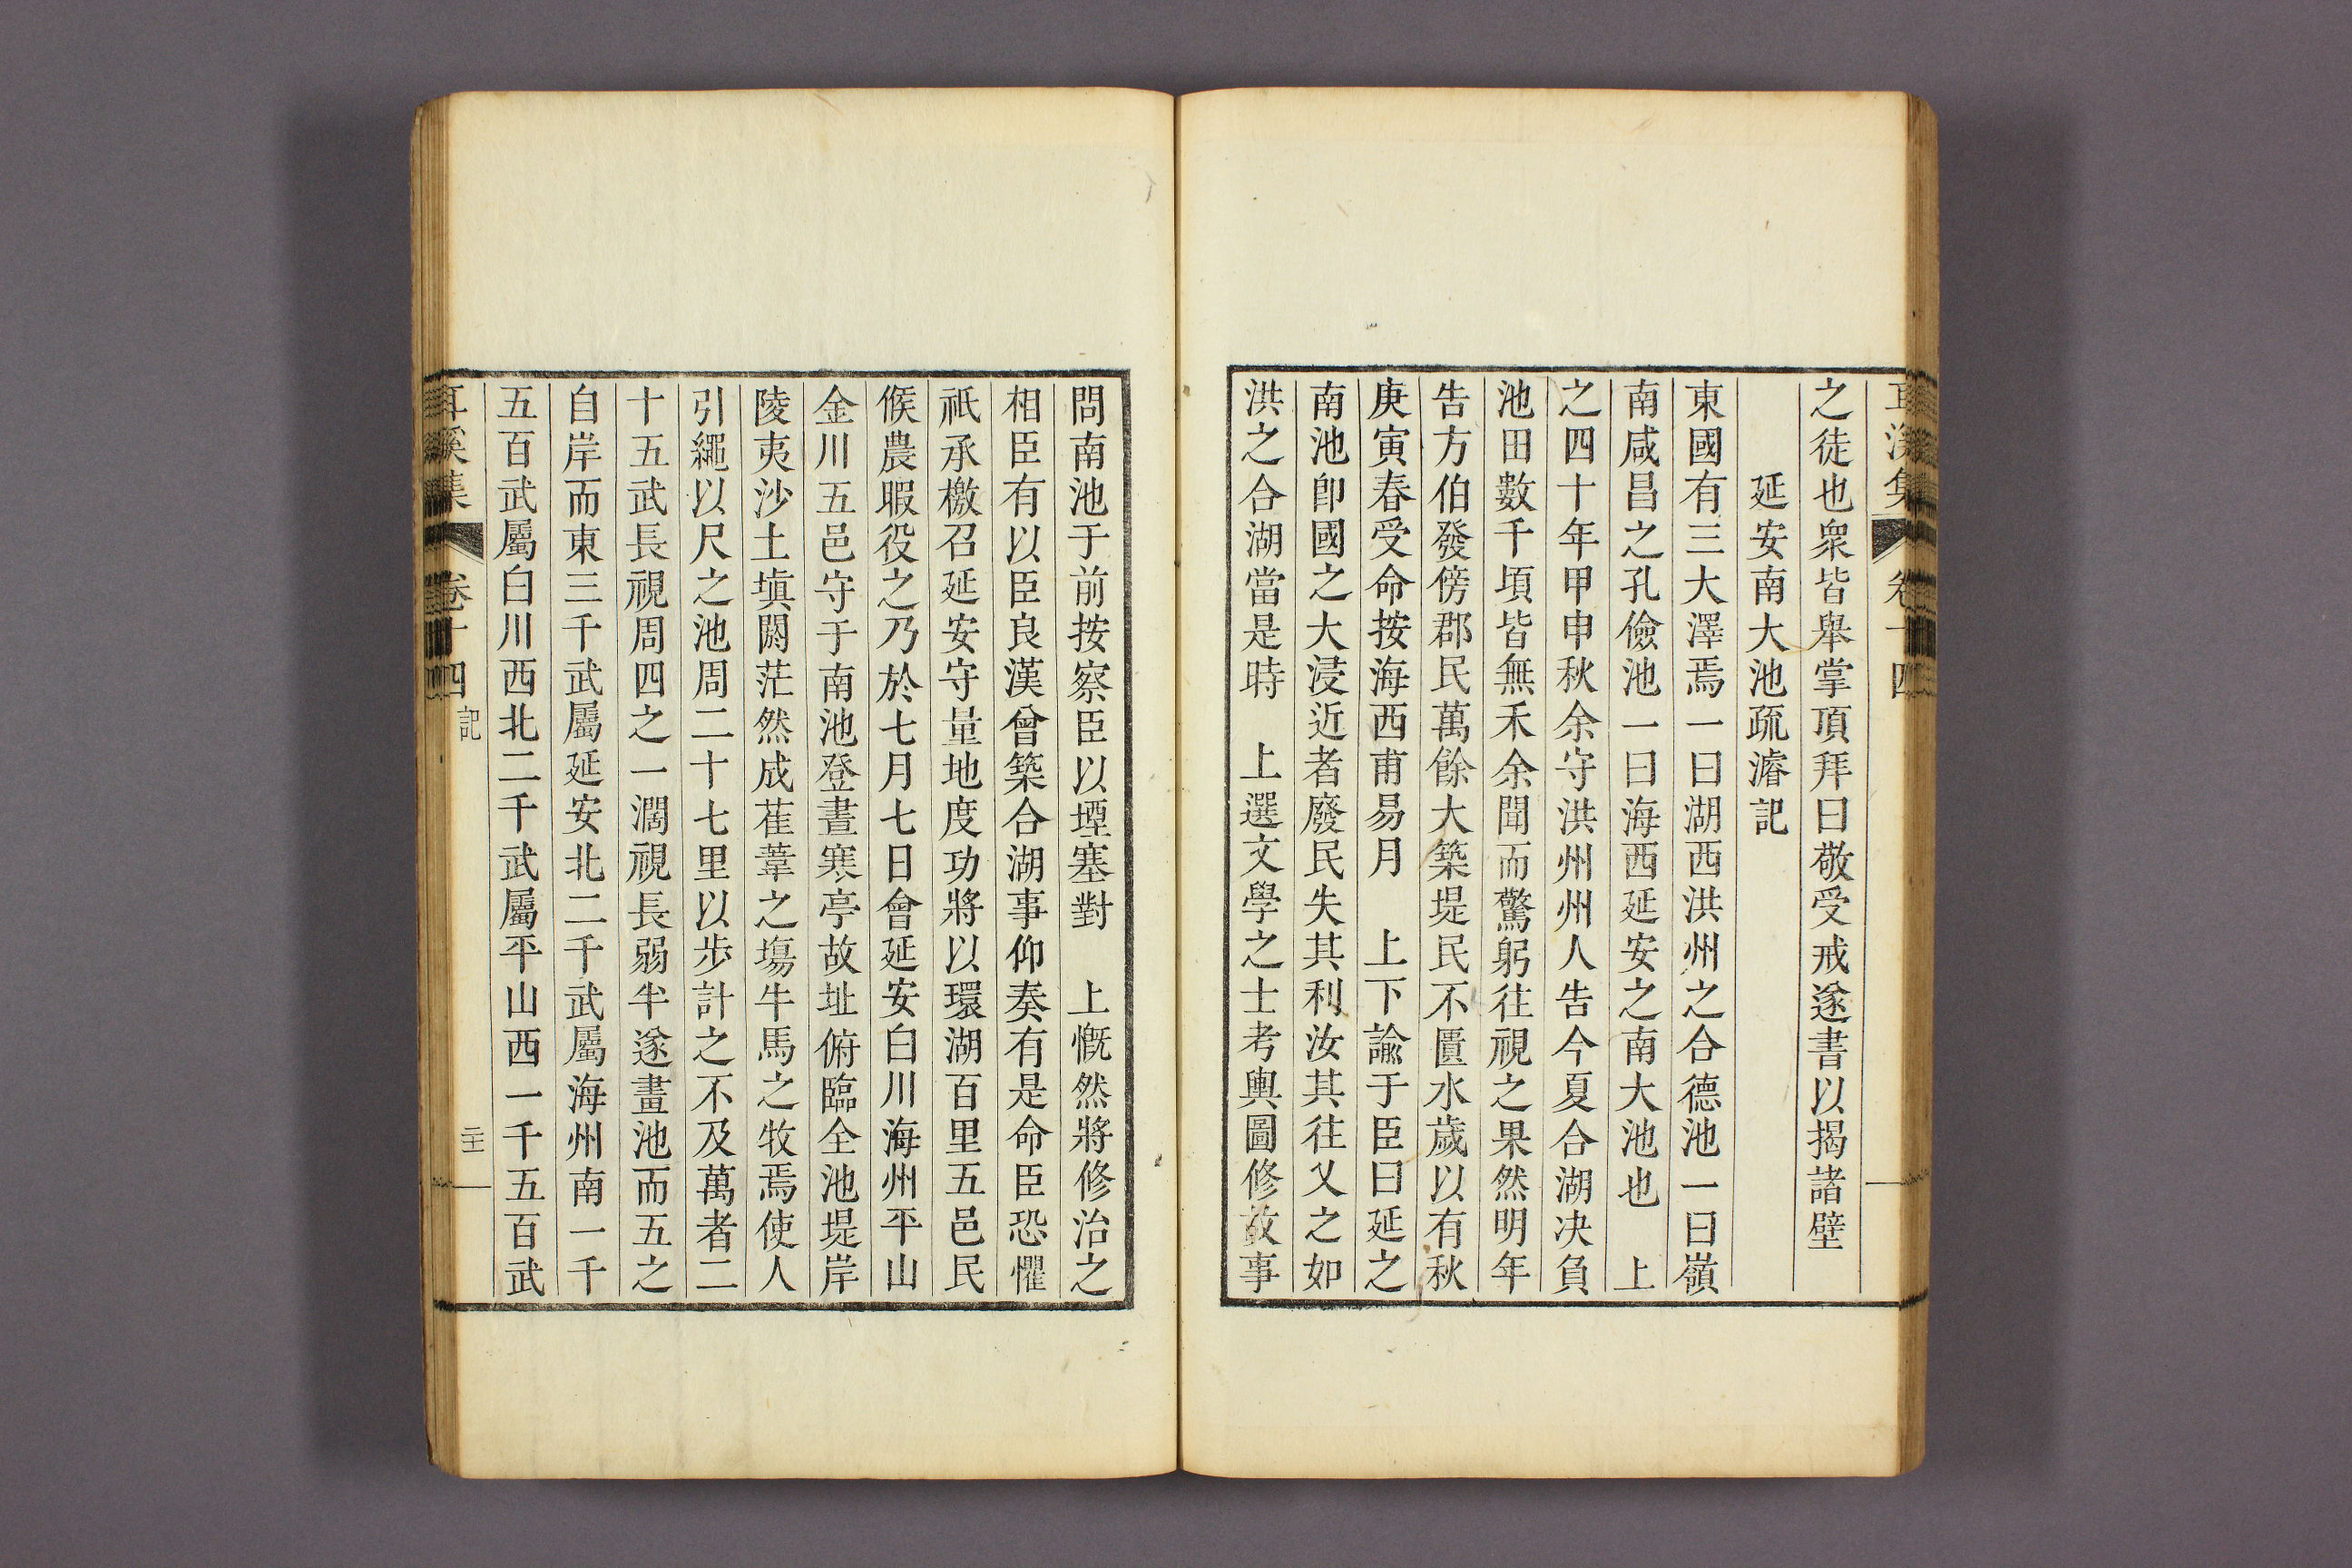 之徒也衆皆舉掌頂拜曰敬受戒遂書以揭諸壁
延安南大池疏濬記
東國有三大澤焉一曰湖西洪州之合德池一曰嶺
南咸昌之孔儉池一曰海西延安之南大池也　上
之四十年甲申秋余守洪州州人告今夏合湖决負
池田數千頃皆無禾余聞而驚躬往視之果然明年
告方伯發傍郡民萬餘大築堤民不匱水歲以有秋
庚寅春受命按海西甫易月　上下諭于臣曰延之
南池卽國之大浸近者廢民失其利汝其往乂之如
洪之合湖當是時　上選文學之士考輿圖修故事
問南池于前按察臣以堙塞對　上慨然將修治之
相臣有以臣良漢曾築合湖事仰奏有是命臣恐懼
祇承檄召延安守量地度功將以環湖百里五邑民
候農暇役之乃於七月七日會延安白川海州平山
金川五邑守于南池登晝寒亭故址俯臨全池堤岸
陵夷沙土塡閼茫然成萑葦之場牛馬之牧焉使人
引繩以尺之池周二十七里以步計之不及萬者二
十五武長視周四之一濶視長弱半遂畫池而五之
自岸而東三千武屬延安北二千武屬海州南一千
五百武屬白川西北二千武屬平山西一千五百武
耳溪集　卷十四　記